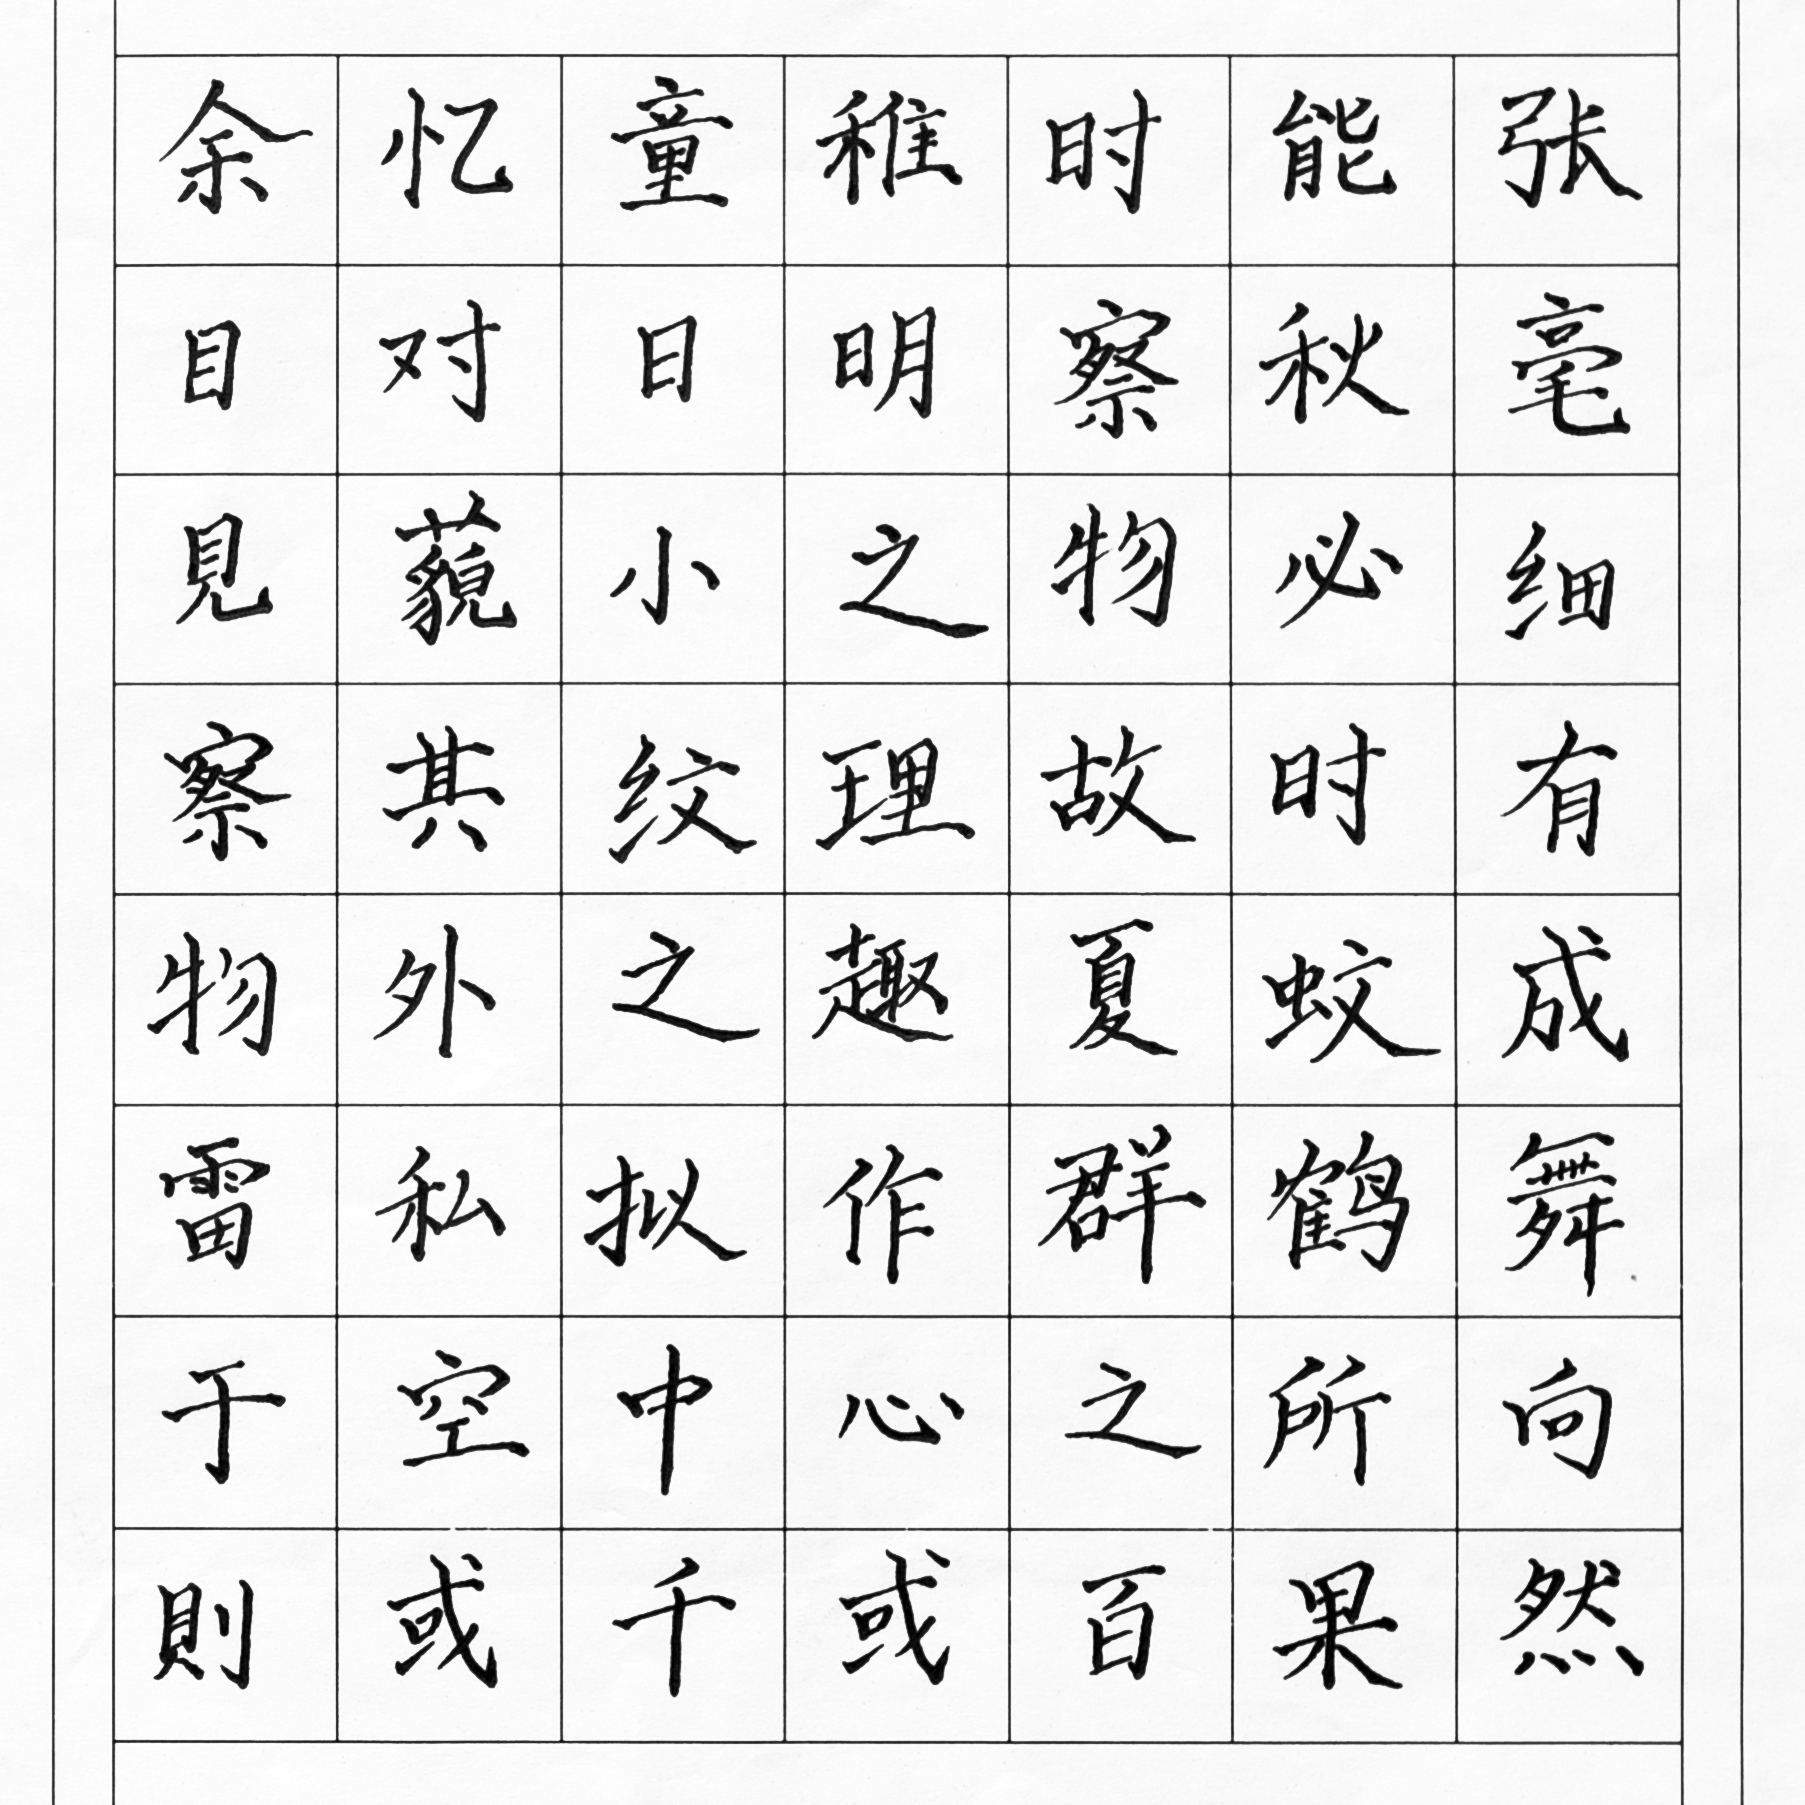 余忆童稚时能张
目对日明察秋毫
見藐小之物必细
察其纹理故时有
物外之趣夏蚊成
雷私拟作群鹤舞
于空中心之所向
則或千或百果然